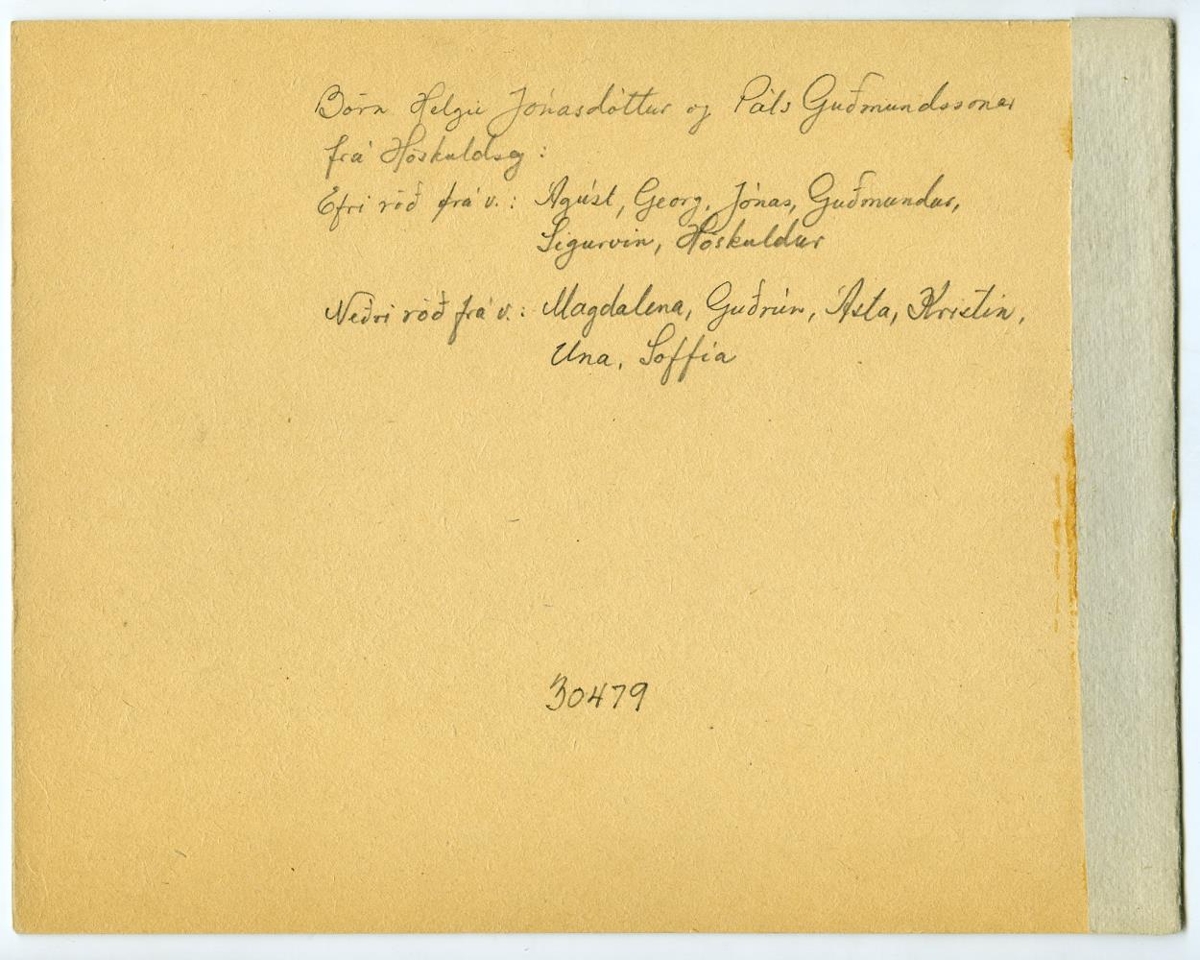 Börn Helgu Jónasdóttur og Páls Guðmundssonar
frá Höskuldsey:
Efri röð frá v.: Ágúst, Georg, Jónas, Guðmundur,
Sigurvin, Höskuldur
Neðri röð frá v.: Magdalena, Guðrún, Ásta, Kristín,
Una, Soffía
30479